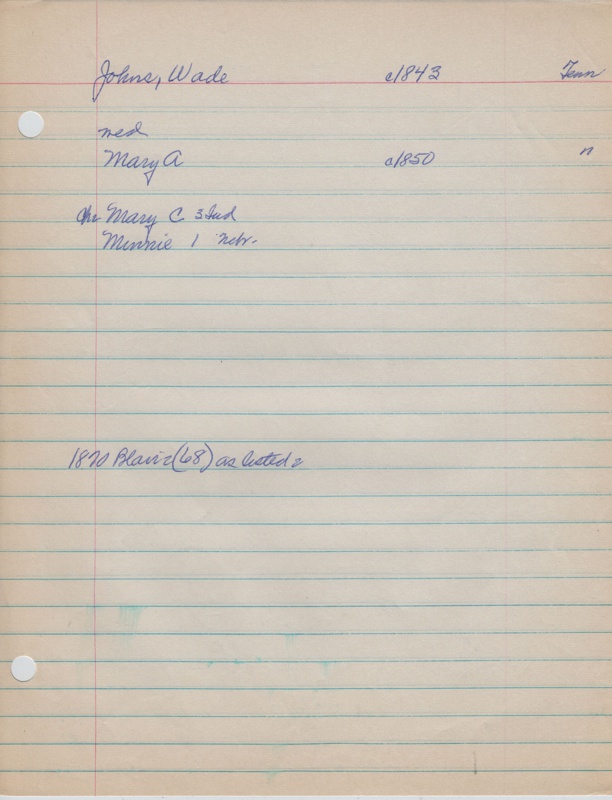 Johns, Wade c/1843 Tenn
med
Mary A c/1850 "
ch Mary C 3 Ind
Minnie 1 Nebr.
1870 Blair (68) as listed